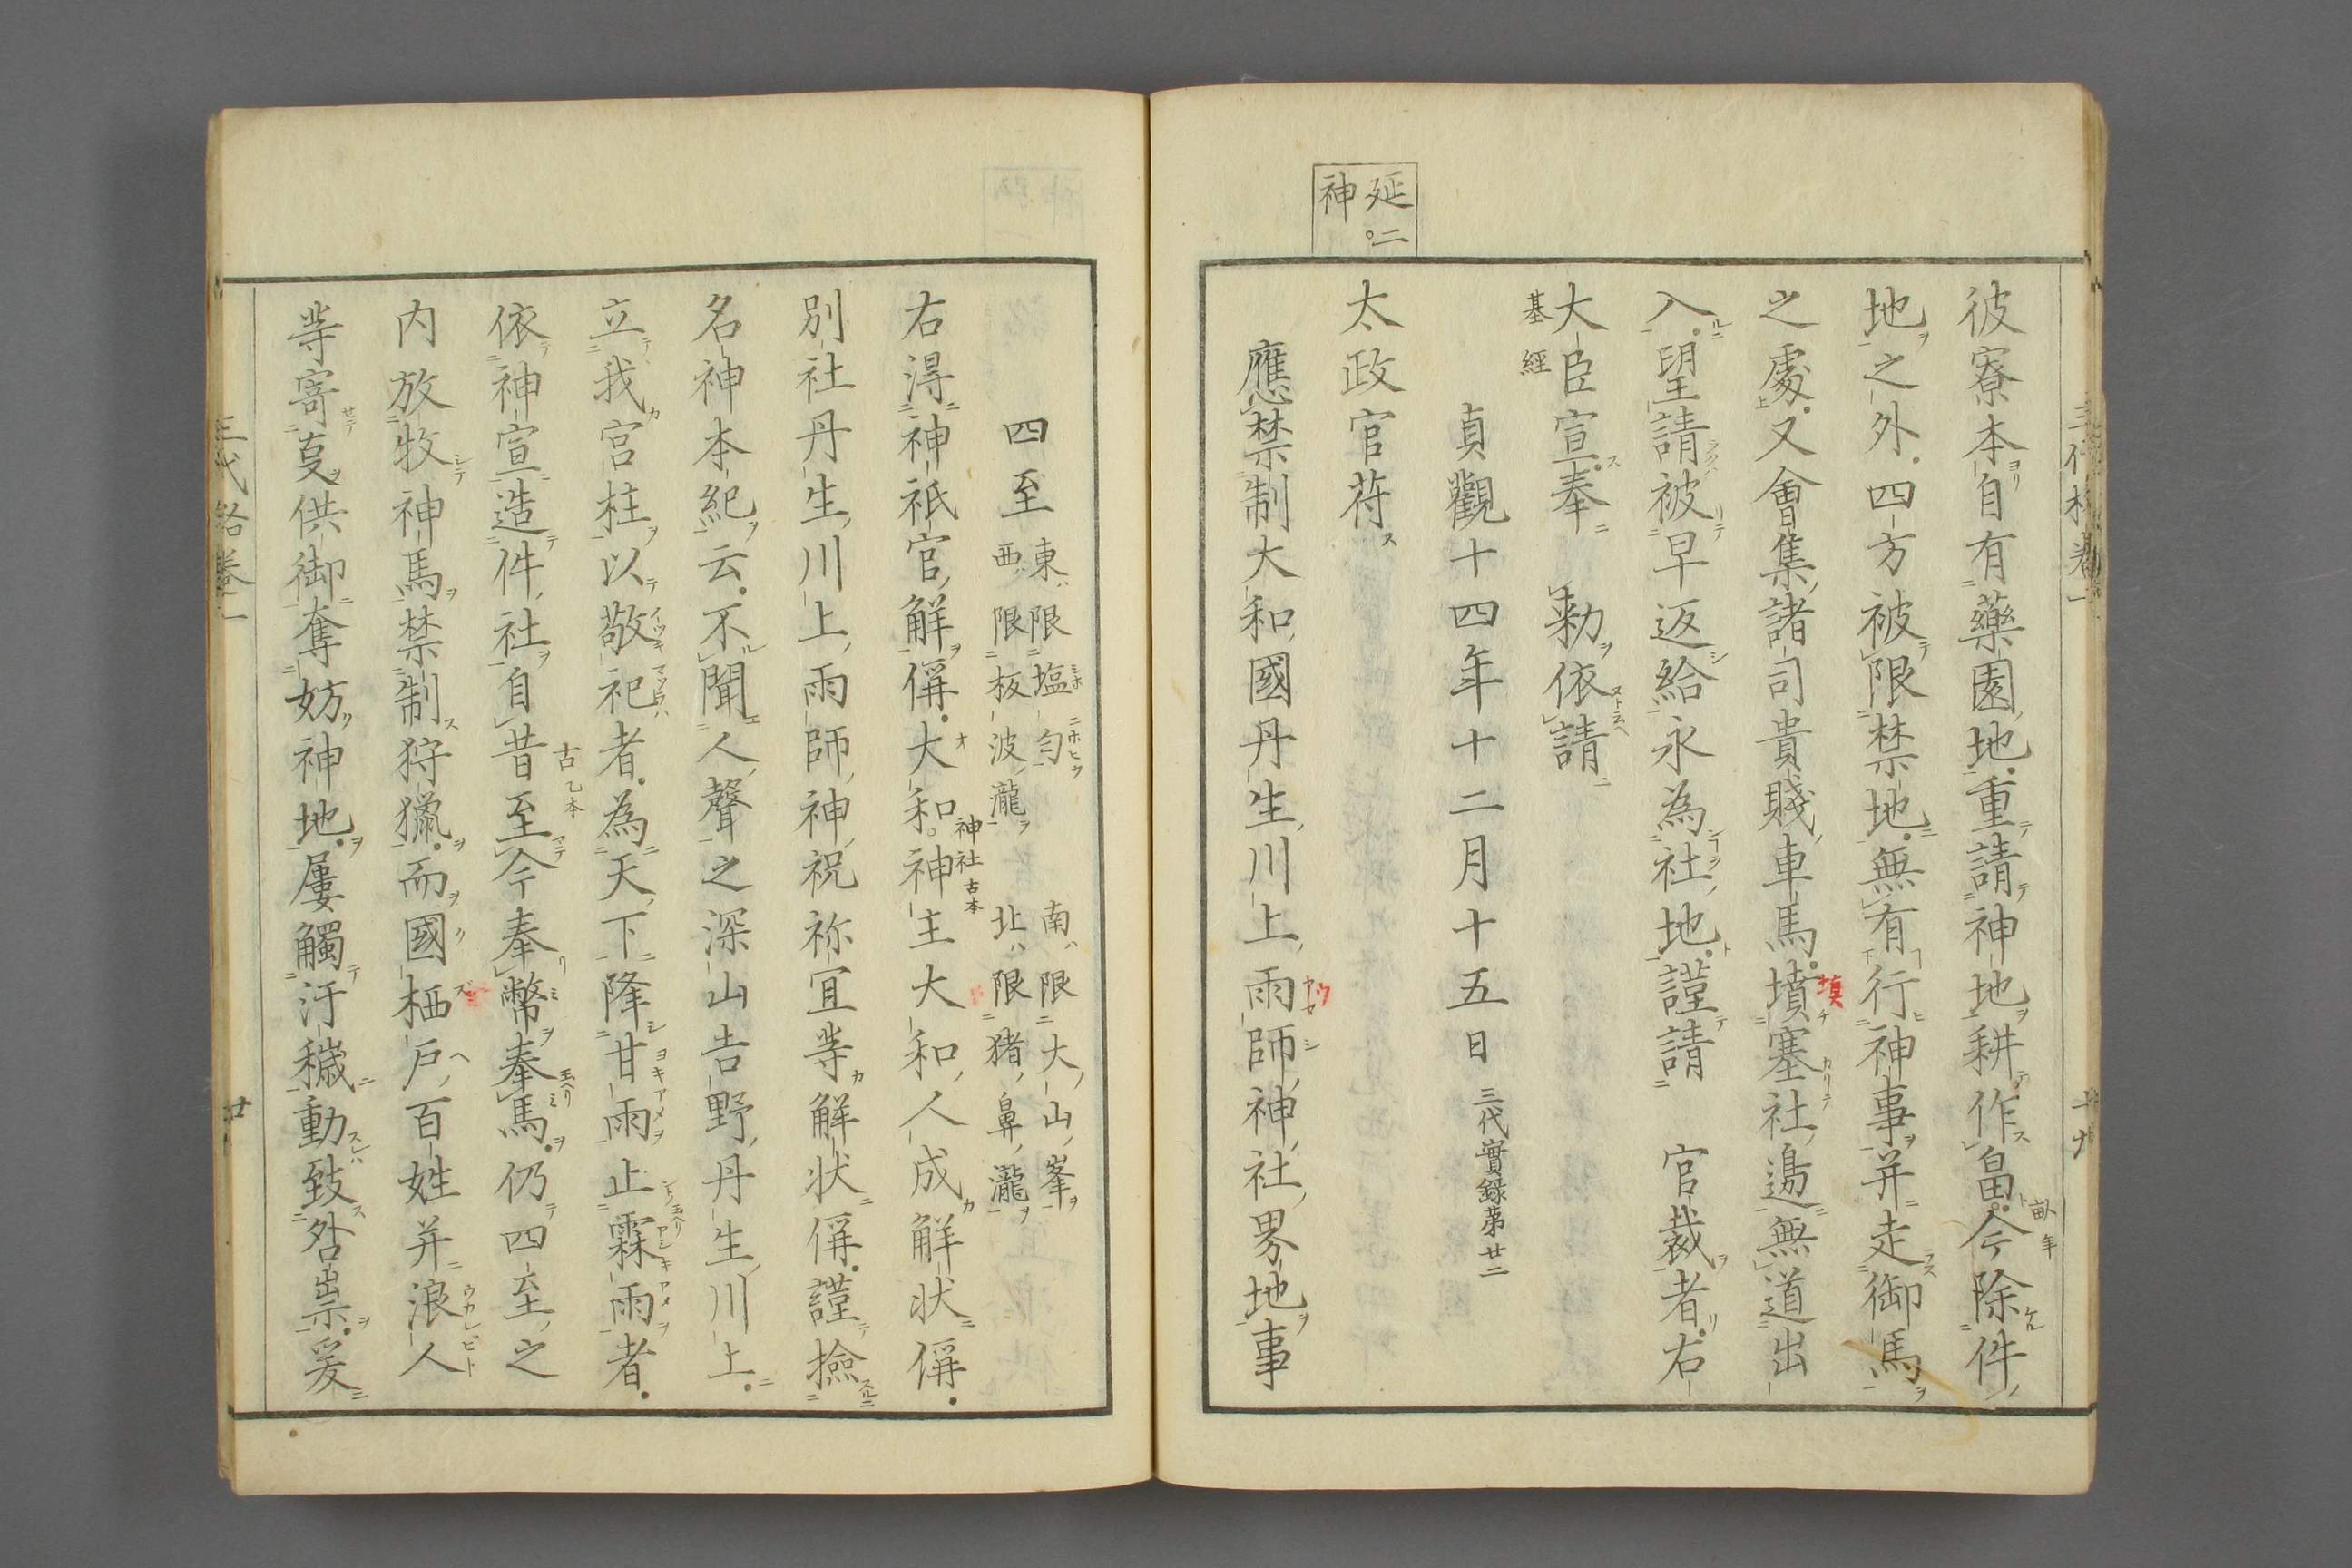 延二。
神
彼寮本自有藥園地。重請神地耕作畠。今除件
地之外。四方被限禁地。無有行神事并走御馬
之處。又會集諸司貴賤車馬。墳塞社邊無道出
入。望請被早返給永為社地。謹請　官裁者。右
大臣宣。奉　勅依請
基經
貞觀十四年十二月十五日　三代實録第廿二
太政官苻
應禁制大和國丹生川上雨師神社界地事
四至　東限塩匂　南限大山峯
西限板波瀧　北限猪鼻瀧
右得神祇官解偁。大和。神主大和人成解状偁。
神社古本
別社丹生川上雨師神祝祢宜等解状偁。謹撿
名神本紀云。不聞人聲之深山吉野丹生川上。
立我宮柱以敬祀者。為天下降甘雨止霖雨者。
依神宣造件社自昔至今奉幣奉馬。仍四至之
古乙本
内放牧神馬禁制狩獵。而國栖戸百姓并浪人
等寄㕝供御奪妨神地。屢觸汙穢動致咎祟。爰
三代格卷一
廿